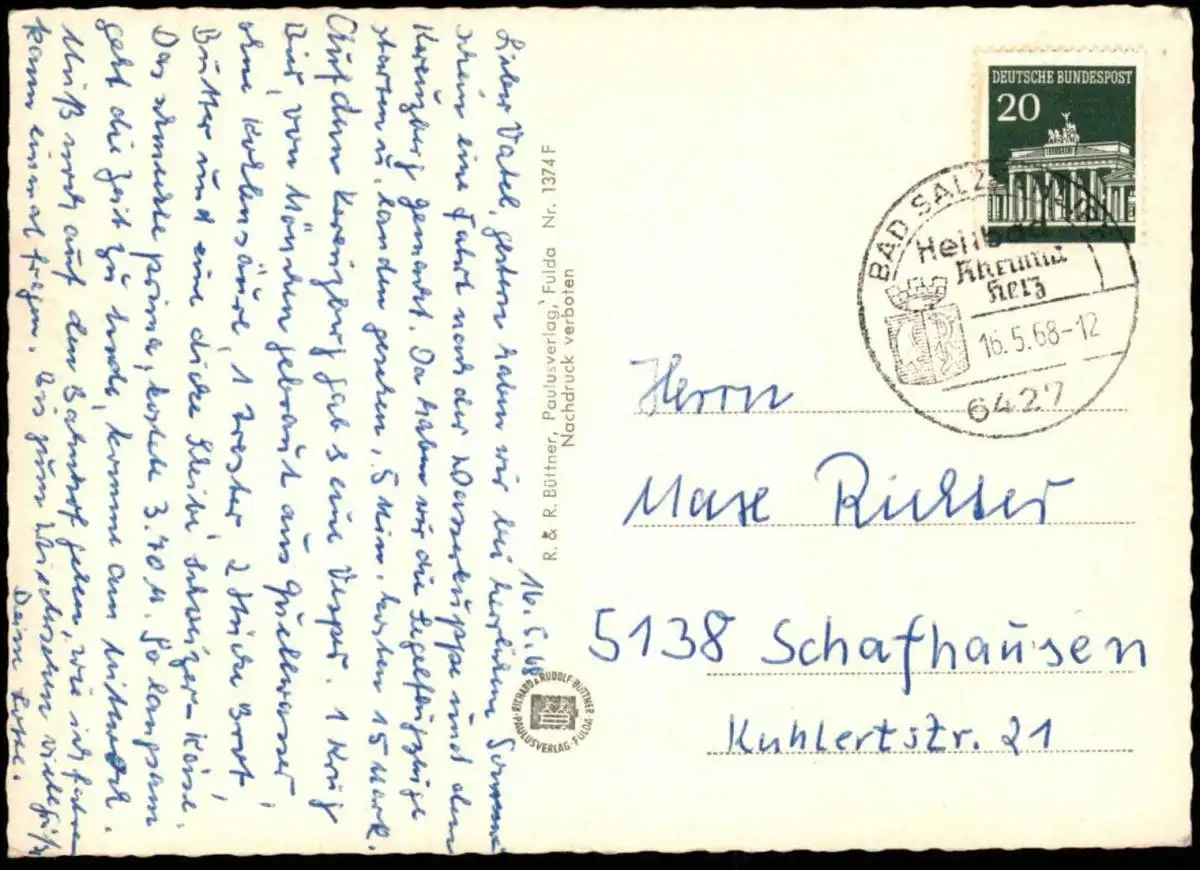 16.5.68
Lieber Vater, gestern haben wir bei herrlichem Sonnen-
schein eine Fahrt nach der Wasserkuppe und dem
Kreuzberg gemacht. Da haben wir die Segelflugzeuge
starten u. landen gesehen, 5 Min. kosten 15 Mark.
Auf dem Kreuzberg gab's eine Vesper. 1 Krug
Bier, von Mönchen gebraut aus Quellwasser,
ohne Kohlensäure, 1 2 Stücke Brot,
Butter und eine dicke Scheibe Schweizer-Käse.
Das schmeckte prima, kostete 3.70 M. So langsam
geht die Zeit zu Ende, komme am Mittwoch.
Muß noch auf den Bahnhof gehen, wie ich fahre
kann einmal fragen. Bis zum Wiedersehen viele Grüße
Deine
R. & R. Büttner, Paulusverlag, Fulda Nr. 1374 F
Nachdruck verboten
RICHARD & RUDOLF BÜTTNER
PAULUSVERLAG · FULDA
DEUTSCHE BUNDESPOST
20
BAD SALZ
Heilbad
Rheuma
Herz
16.5.68-12
6427
Herrn
Max Richter
5138 Schafhausen
Kuhlertstr. 21